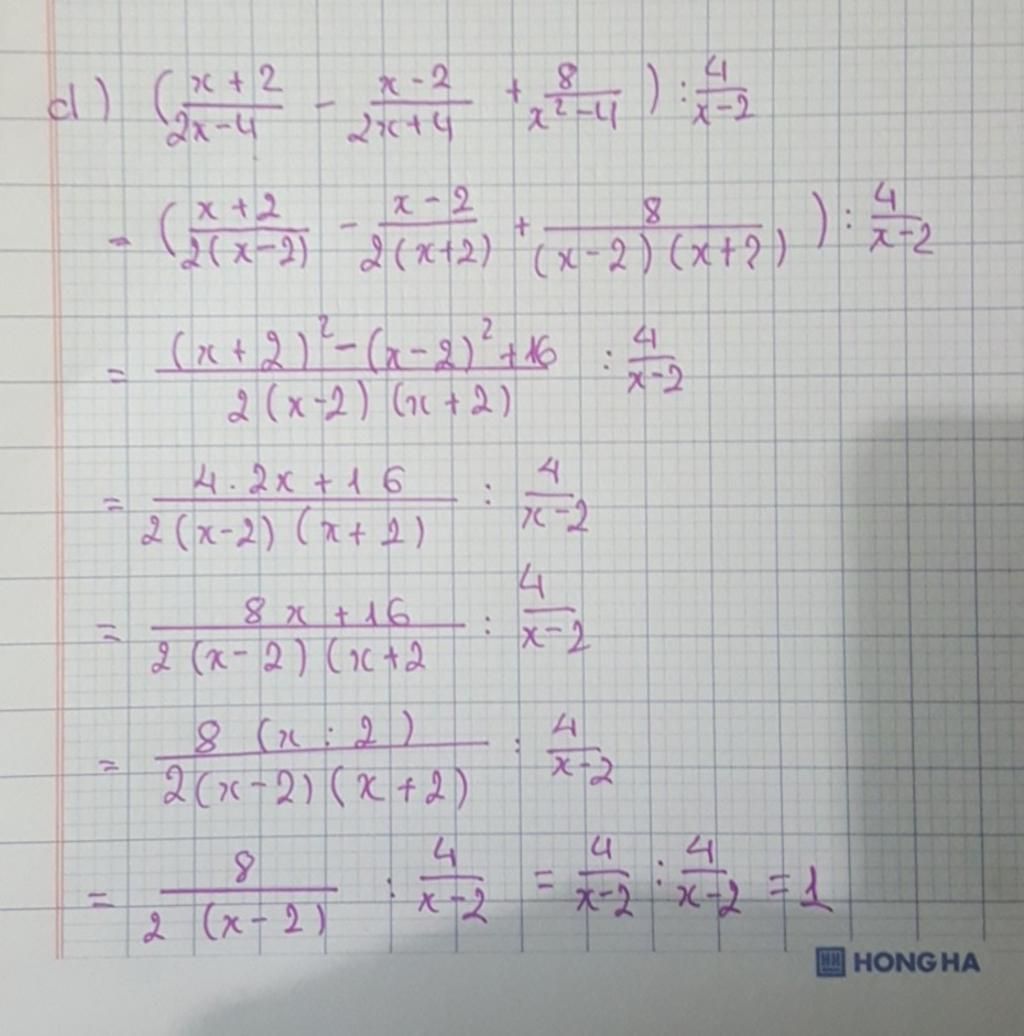 d) (x + 2 / 2x - 4 - x - 2 / 2x + 4 + 8 / x² - 4) : 4 / x - 2
= (x + 2 / 2(x - 2) - x - 2 / 2(x + 2) + 8 / (x - 2)(x + 2)) : 4 / x - 2
= (x + 2)² - (x - 2)² + 16 / 2(x - 2)(x + 2) : 4 / x - 2
= 4 . 2x + 16 / 2(x - 2)(x + 2) : 4 / x - 2
= 8x + 16 / 2(x - 2)(x + 2 : 4 / x - 2
= 8(x : 2) / 2(x - 2)(x + 2) : 4 / x - 2
= 8 / 2(x - 2) : 4 / x - 2 = 4 / x - 2 : 4 / x - 2 = 1
HONG HA